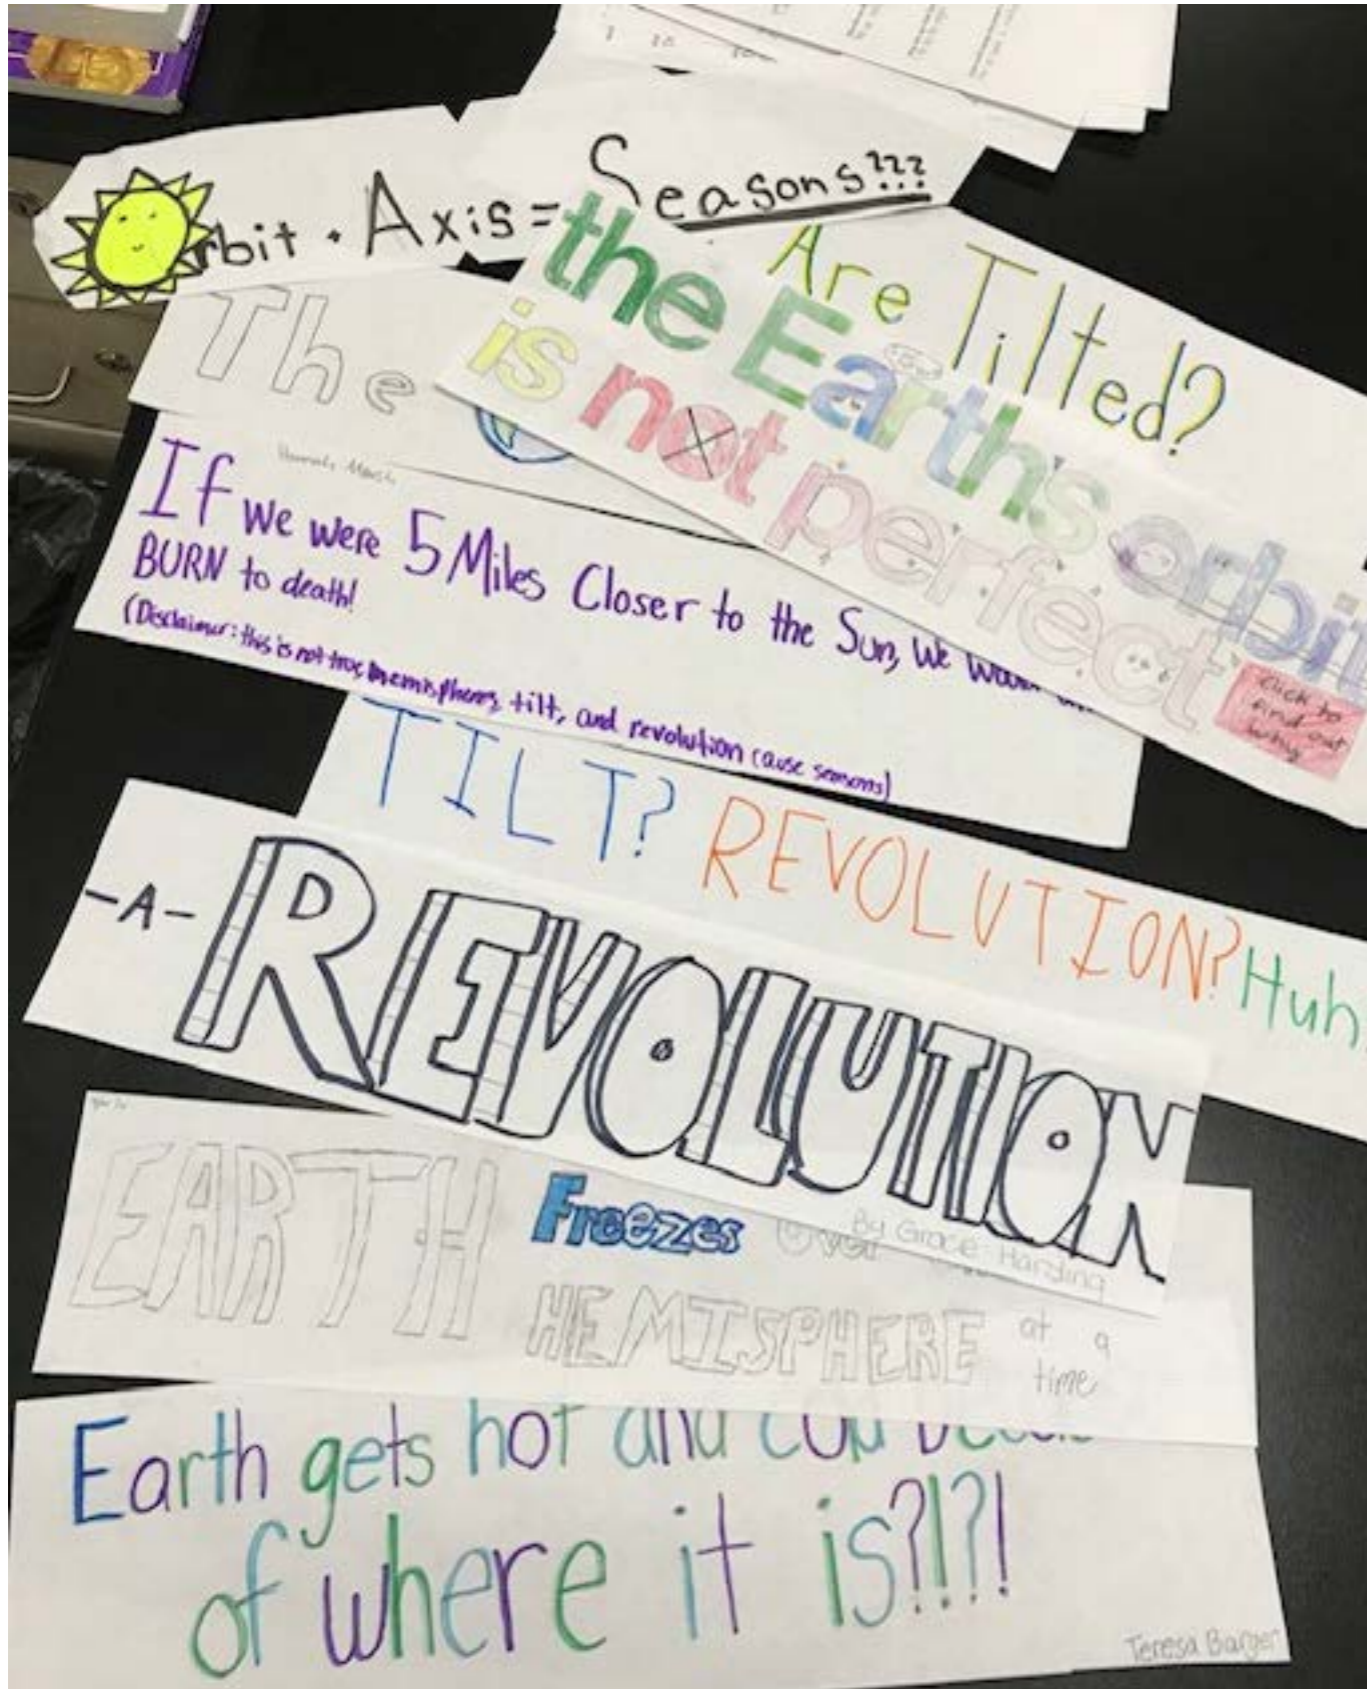 Seasons???
rbit · Axis =
Are Tilted?
the Earths orbit
is not perfect
click to
find out
why
The
If we were 5 Miles Closer to the Sun, we
BURN to death!
(Disclaimer: this is not true, hemispheres, tilt, and revolution cause seasons)
TILT? REVOLUTION? Huh
-A- REVOLUTION
By Grace Harding
EARTH Freezes over
HEMISPHERE at a
time
Earth gets hot and cold
of where it is?!?!
Teresa Barger